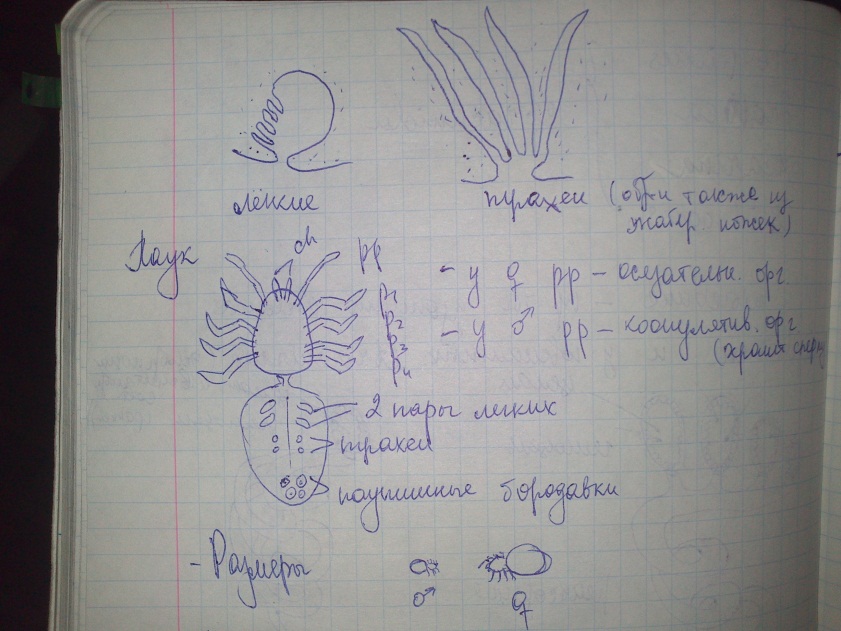 лёгкие
трахеи (обр-ны также из
жабр. ножек)
Паук
ch
pp
p1
p2
p3
p4
- у ♀ pp – осязательн. орг.
- у ♂ pp – коопулятив. орг.
(хранит сперму
2 пары легких
трахеи
паутинные бородавки
- Размеры
♂ ♀